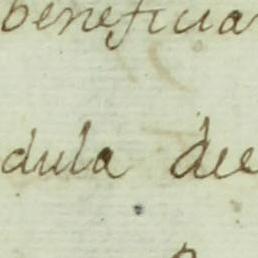 beneficia
dula de